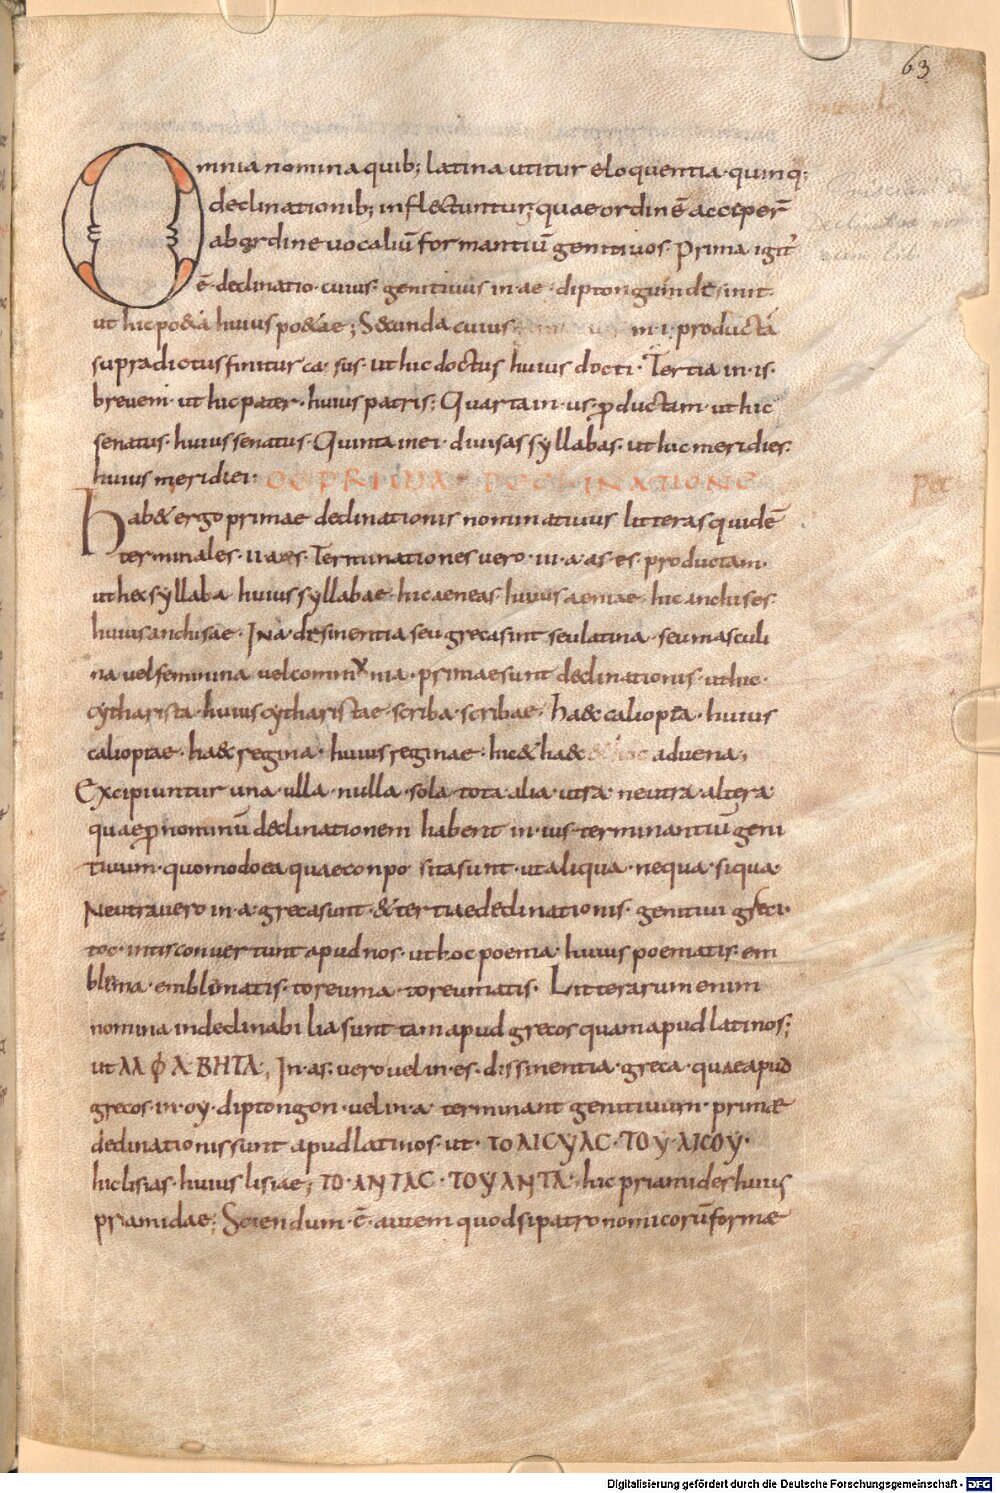 63
Omnia nomina quib; latina utitur eloquentia· quinq;
declinationib; inflectuntur; quae ordinē acceper̄
ab ordine vocaliū formantiū genitivos. Prima igit̄
ē· declinatio· cuius· genitivus in· ae· diptongum desinit·
ut hic poeta huius poetae; Secunda cuius in· i· producta
supradictus finitur ca· sus· ut hic doctus huius docti· Tertia in· is·
brevem· ut hic pater· huius patris; Quarta in· us· productam· ut hic
senatus· huius senatus· Quinta in ei· divisas syllabas· ut hic meridies·
huius meridiei· DE PRIMA DECLINATIONE
Habet ergo primae declinationis nominativus litteras quidē
terminales· ii· a et s· Terminationes vero· iii· a· as· es· productam·
ut hec syllaba huius syllabae· hic aeneas· huius aeneae· hic anchises·
huius anchisae· In a· desinentia seu greca sint seu latina· seu masculi
na vel feminina vel communia· primae sunt declinationis· ut hic·
cytharista· huius cytharistae· scriba· scribae· haec caliopea· huius
caliopeae· haec regina· huius reginae· hic & haec advena;
Excipiuntur una· ulla· nulla· sola· tota· alia· utra· neutra· altera·
quae pnominū declinationem habent in· ius· terminantiū geni
tivum· quomodo ea quae conpo sita sunt· ut aliqua· nequa· siqua·
Neutra vero in· a· greca sunt· & tertiae declinationis· genitivi greci·
toc· in tis convertunt apud nos· ut hoc poema· huius poematis· em
blema· emblematis· toreuma· toreumatis· Litterarum enim
nomina indeclinabilia sunt tam apud grecos quam apud latinos;
ut ΑΛΦΑ· ΒΗΤΑ; In· as· vero vel in· es· dissinentia· greca· quae apud
grecos· in· oy· diptongon· vel in· a· terminant genitivum· primae
declinationis sunt apud latinos· ut· ΤΟ ΛΙCΥΑC· ΤΟΥ· ΛΙCΟΥ·
hic lisias· huius lisiae; ΤΟ· ΑΝΤΑC· ΤΟΥ ΑΝΤΑ· hic priamides huius
priamidae; Sciendum· ē· autem quod si patronomicorū formae
Digitalisierung gefördert durch die Deutsche Forschungsgemeinschaft - DFG